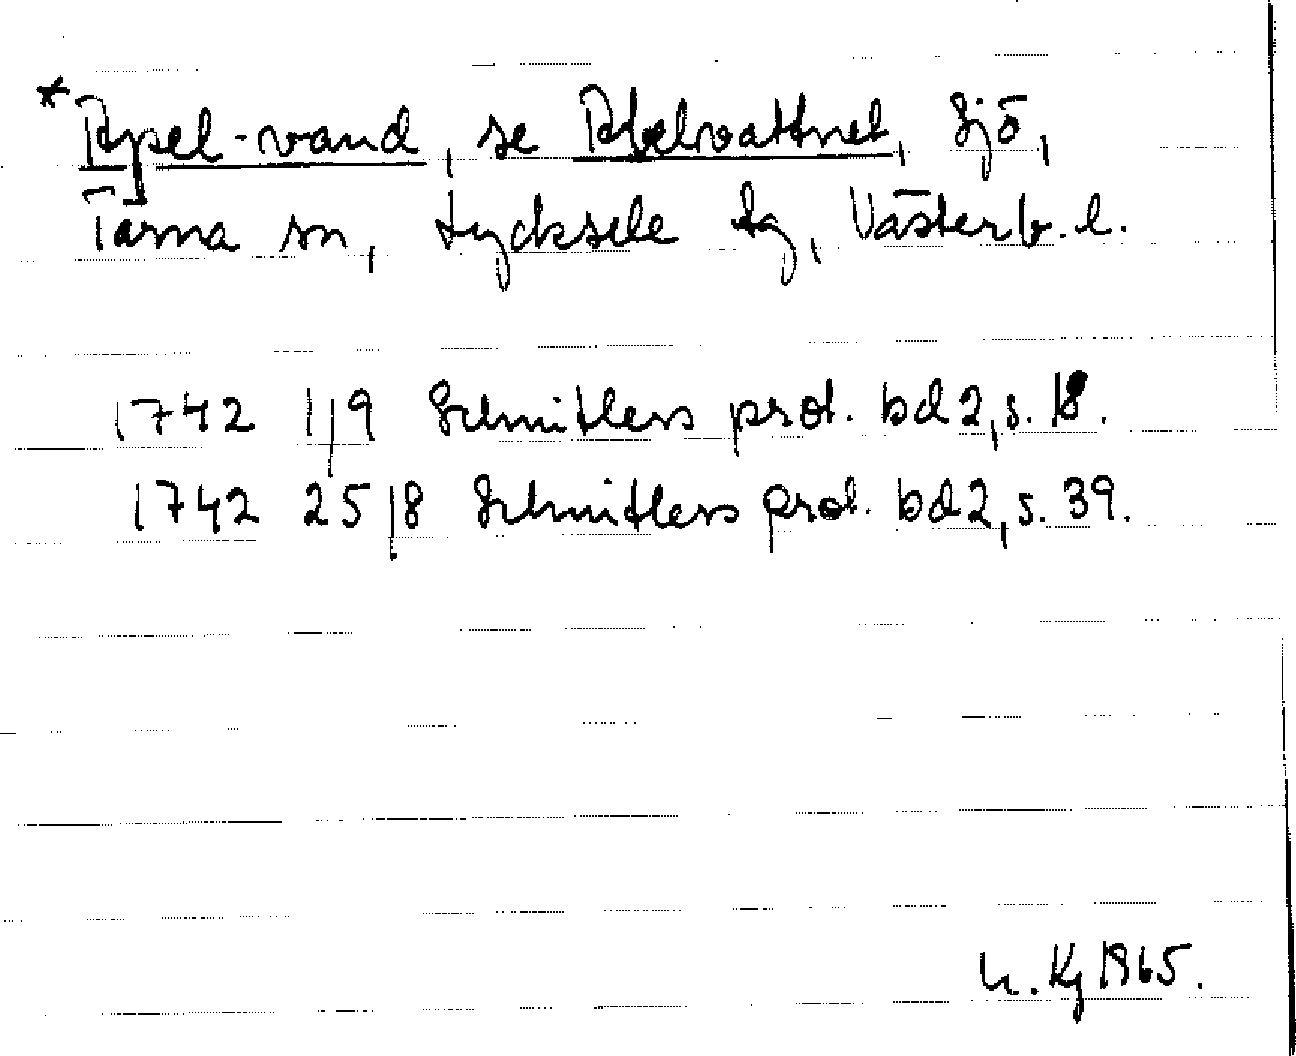 * Apel-vand, se Abelvattnet, sjö,
Tärna sn, Lycksele lg, Västerb. l.
1742 1/9 Schnitlers prot. bd 2, s. 18.
1742 25/8 Schnitlers prot. bd 2, s. 39.
1965.